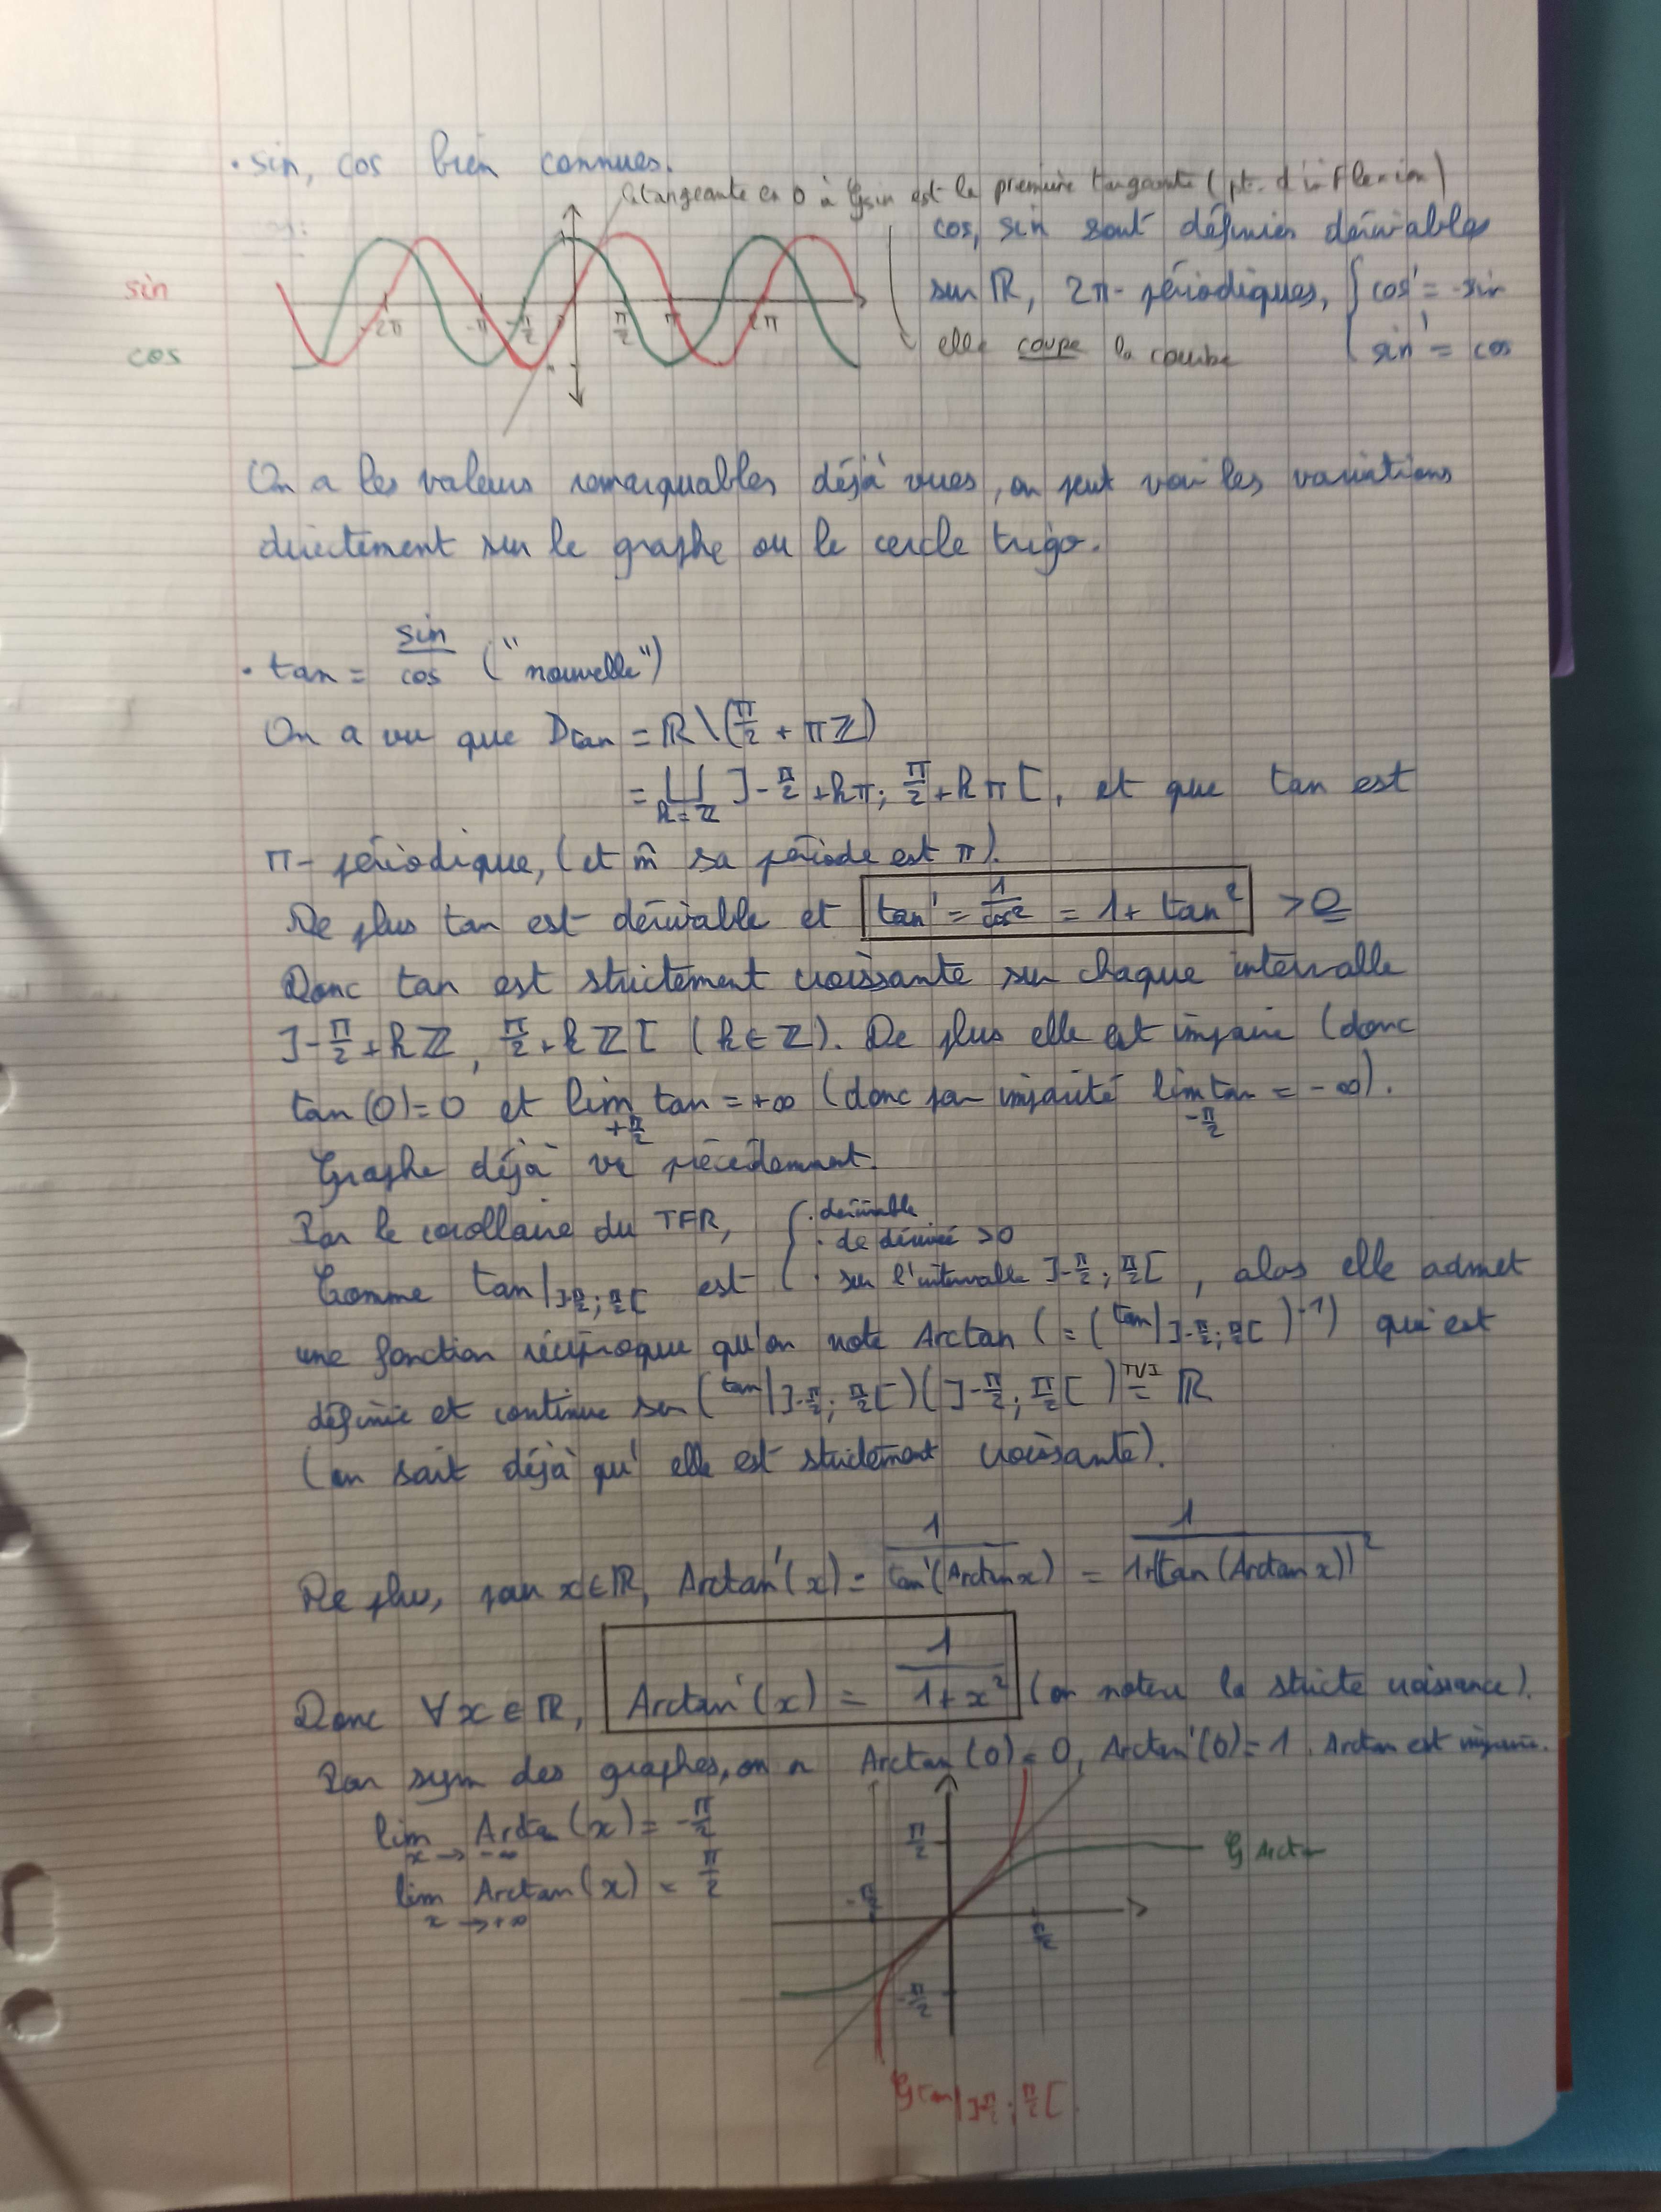 • sin, cos bien connues.
la tangeante en 0 à 𝒞sin est la première tangeante (pt. d'inflexion)
cos, sin sont définies dérivables
sin
sur ℝ, 2π-périodiques, { cos' = -sin
-2π -π -π/2 π/2 π 2π
cos
elle coupe la courbe
sin' = cos
On a les valeurs remarquables déjà vues, on peut voir les variations
directement sur le graphe ou le cercle trigo.
• tan = sin/cos ("nouvelle")
On a vu que Dtan = ℝ \ (π/2 + πℤ)
= ⨆_{k=ℤ} ]-π/2 + kπ; π/2 + kπ[, et que tan est
π-périodique, (et m̂ sa période est π).
De plus tan est dérivable et tan' = 1/cos² = 1 + tan² > 0
Donc tan est strictement croissante sur chaque intervalle
]-π/2 + kℤ, π/2 + kℤ[ (k ∈ ℤ). De plus elle est impaire (donc
tan(0) = 0 et lim_{+π/2} tan = +∞ (donc par imparité lim_{-π/2} tan = -∞).
Graphe déjà vu précédemment.
Par le corollaire du TFR,
{ . dérivable
. de dérivée > 0
Comme tan|]-π/2; π/2[ est . sur l'intervalle ]-π/2; π/2[, alors elle admet
une fonction réciproque qu'on note Arctan (= (tan|]-π/2; π/2[)⁻¹) qui est
définie et continue sur (tan|]-π/2; π/2[)(]-π/2; π/2[) =^{TVI} ℝ
(on sait déjà qu'elle est strictement croissante).
De plus, pour x ∈ ℝ, Arctan'(x) = 1/tan'(Arctan x) = 1/1+(tan(Arctan x))²
Donc ∀x ∈ ℝ, Arctan'(x) = 1/1+x² (on notera la stricte croissance).
Par sym des graphes, on a Arctan(0) = 0, Arctan'(0) = 1. Arctan est impaire.
lim_{x→-∞} Arctan(x) = -π/2
lim_{x→+∞} Arctan(x) = π/2
π/2
𝒞Arctan
-π/2
π/2
-π/2
𝒞tan|]-π/2; π/2[